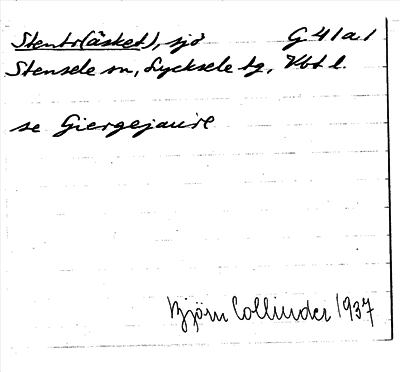 Stentr(äsket), sjö G 41 a 1
Stensele sn, Lycksele tg, Vbt l.
se Giergejaure
Björn Collinder 1937